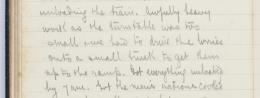 unloading the train. Awfully heavy
work as the turntable was too
small & we had to drive the lorries
onto a small truck to get them
up to the ramp. Got everything unloaded
by 7am. Got the men's rations cooked